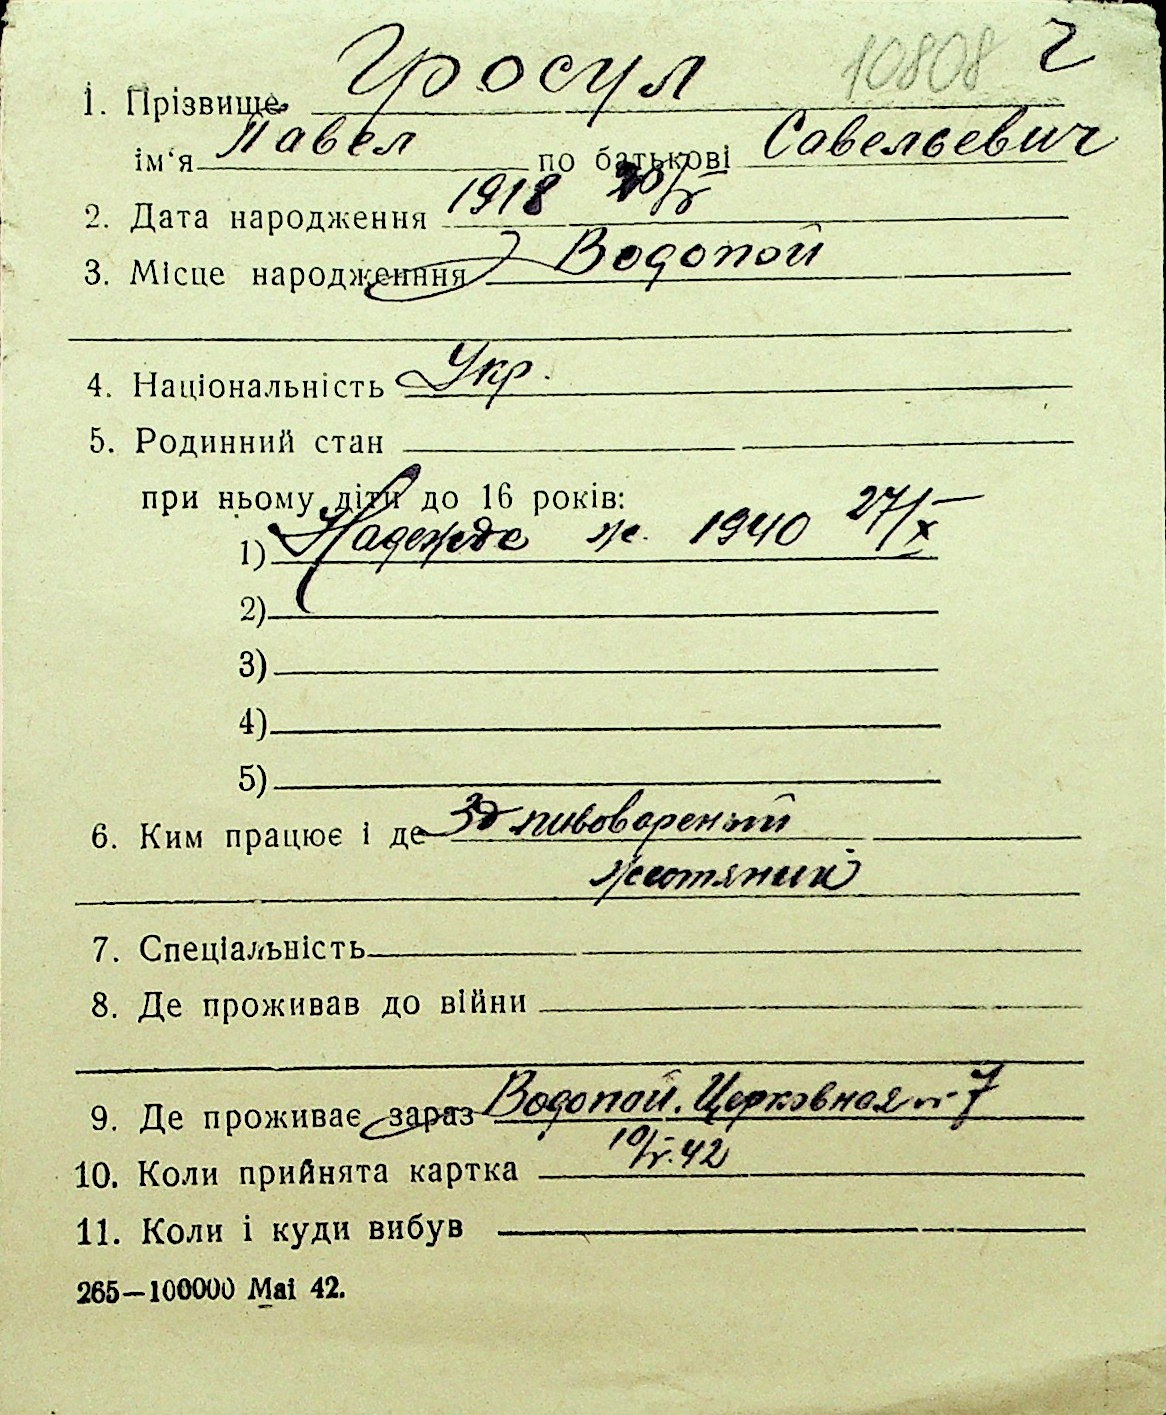 10808 ч
1. Прізвище Гросул
ім‘я Павел по батькові Савельевич
2. Дата народження 1918 20/V
3. Місце народження Водопой
4. Національність Укр.
5. Родинний стан
при ньому діти до 16 років:
1) Надежда ж. 1940 27/X
2)
3)
4)
5)
6. Ким працює і де Зд пивовареный
жестяник
7. Спеціальність
8. Де проживав до війни
9. Де проживає зараз Водопой. Церковная 7
10. Коли прийнята картка 10/V.42
11. Коли і куди вибув
265—100000 Mai 42.